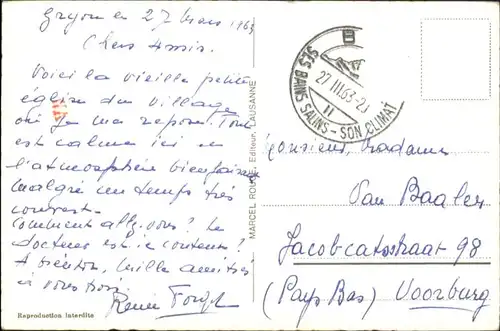 Gryon le 27 Mars 1963
Chers Amis.
Voici la vieille petite
église du village
où je me repose. Tout
est calme ici et
l'atmosphère bienfaisante
malgré un temps très
couvert.
Comment allez-vous? Le
docteur est-il content?
A bientôt, mille amitiés
à vous trois.
Renée
Reproduction interdite
MARCEL Editeur, LAUSANNE
SES BAINS SALINS - SON CLIMAT
27 III 63
Monsieur Madame
Van Baalen
Jacobcatsstraat 98
(Pays Bas) Voorburg